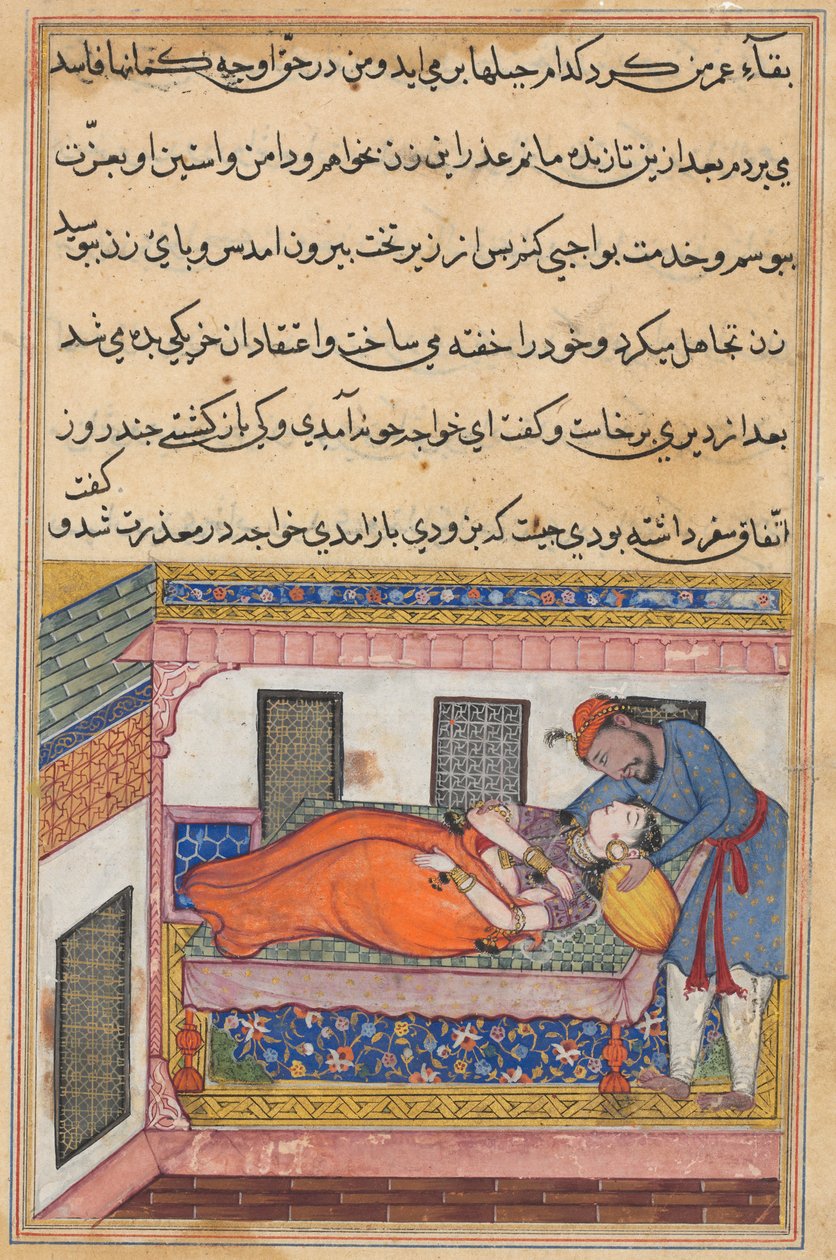 بقآءِ عمر من کرد کدام حیلها بر می اید و من در حقّ او چه کمانها فاسد
می بردم بعد ازین تا زنده مانم عذر این زن بخواهم و دامن و استین او بعزّت
ببوسم و خدمت بواجبی کنم بس از زیر تخت بیرون امد سر و بایٔ زن ببوسید
زن تجاهل میکرد و خود را خفته می ساخت و اعتقاد ان خر یکی بده می شد
بعد از دیری برخاست و کفت ای خواجه جون آمدی و کی باز کشتی جند روز
اتّفاق سفر داشته بودی جیست که بزودی باز امدی خواجه در معذرت شد و کفت